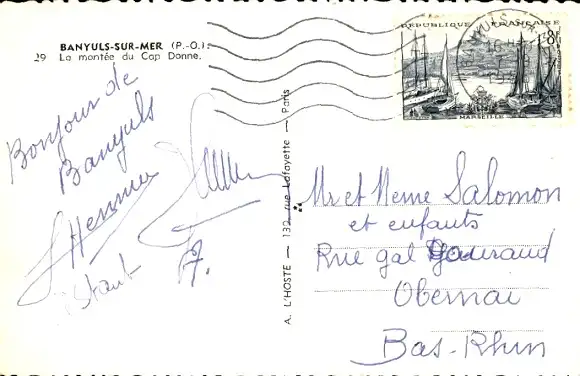 BANYULS-SUR-MER (P.-O.)
29 La montée du Cap Donne.
Bonjour de
Banyuls
A. L'HOSTE — 132, rue Lafayette — Paris
REPUBLIQUE FRANÇAISE
8F
MARSEILLE
Mr et Meme Salomon
et enfants
Rue gal Gouraud
Obernai
Bas-Rhin